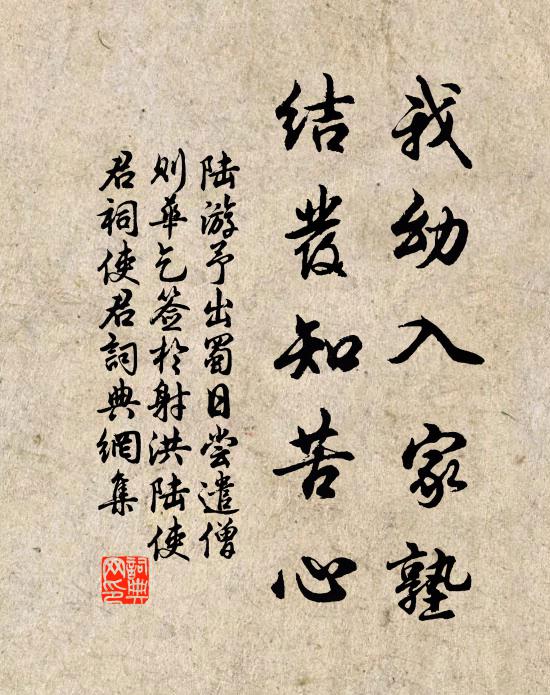 我幼入家塾
結發知苦心
陆游予出蜀日尝遣僧
则华乞签於射洪陆使
君祠使君詞典網集
詞典
网印